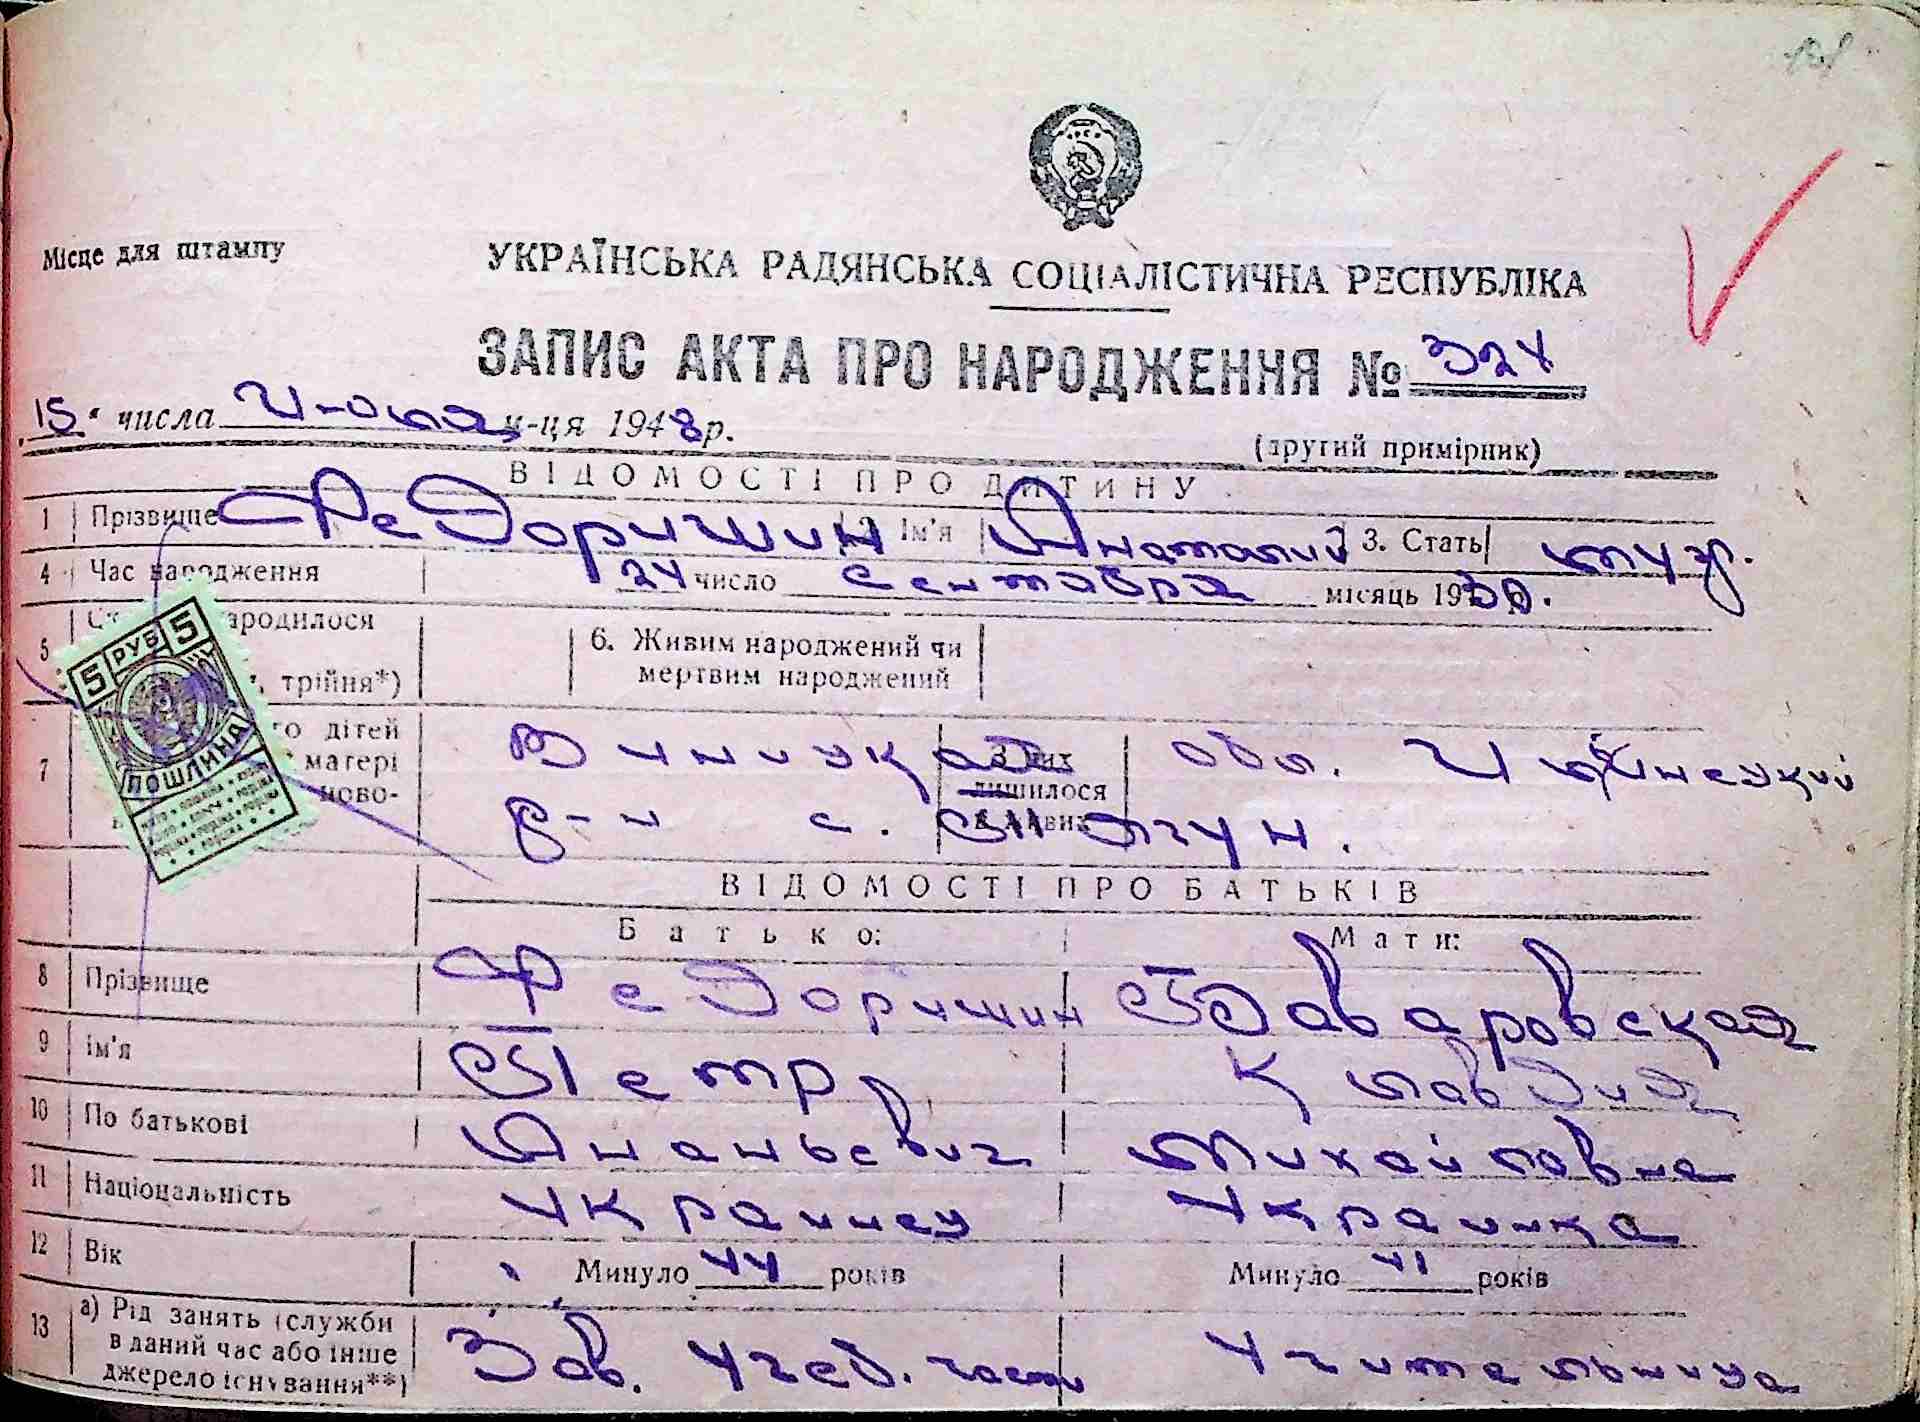 Місце для штампу
УКРАЇНСЬКА РАДЯНСЬКА СОЦІАЛІСТИЧНА РЕСПУБЛІКА
ЗАПИС АКТА ПРО НАРОДЖЕННЯ № 324
15 " числа Июля м-ця 1948 р.
(другий примірник)
ВІДОМОСТІ ПРО ДИТИНУ
1 Прізвище Федоришин 2 Ім'я Анатолий 3. Стать муж.
4 Час народження 24 число сентября місяць 1930.
5 народилося трійня*) 6. Живим народжений чи мертвим народжений
7 дітей матері ново- З них лишилося в живих
Виницкая обл. Ильинецкий
р-н с.
ВІДОМОСТІ ПРО БАТЬКІВ
Батько: Мати:
8 Прізвище Федоришин Баваровская
9 Ім'я Петр Клавдия
10 По батькові Ананьевич Михайловна
11 Національність Украинец Украинка
12 Вік Минуло 44 років Минуло 41 років
13 а) Рід занять (служби в даний час або інше джерело існування**) Зав. Учеб. части Учительница
5 РУБ 5
ПОШЛИНА